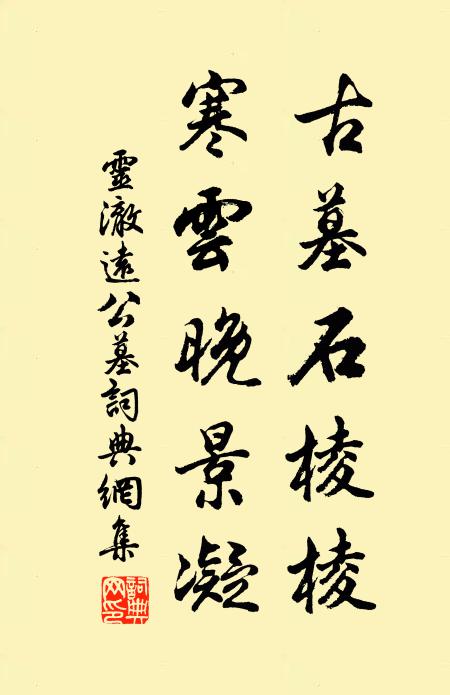 古墓石棱棱
寒雲晚景凝
靈澈遠公墓詞典網集
詞典网印